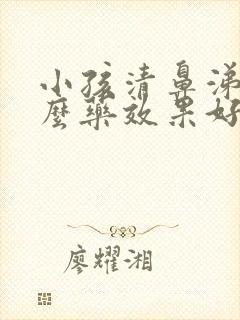 小孩清鼻涕
麼藥效果好
廖耀湘